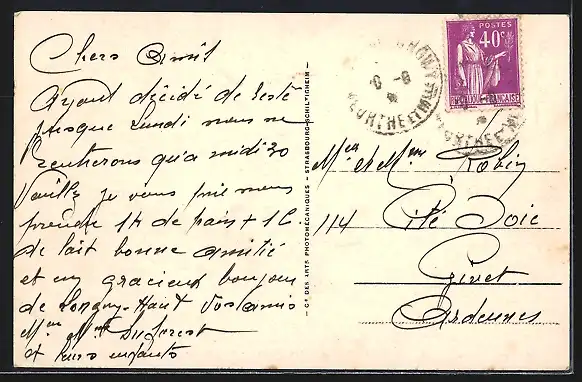 Chers Amis
Ayant décidé de resté
jusque Lundi nous ne
rentrerons qu'a midi 30
Veuillez je vous prie nous
prendre 1K de pain + 1L
de lait bonne amitié
et un gracieux bonjour
de Longwy-Haut Vos amis
Mr Mme Duforest
et leurs enfants
Cie DES ARTS PHOTOMÉCANIQUES - STRASBOURG-SCHILTIGHEIM
POSTES
40c
RÉPUBLIQUE FRANÇAISE
MEURTHE ET M
Mr et Mme Robin
114 Cité Soie
Givet
Ardennes